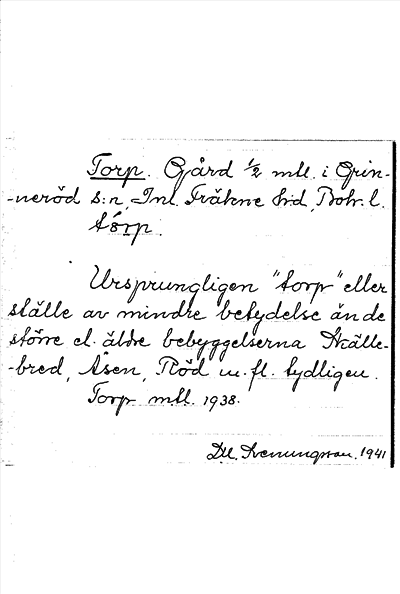 Torp. Gård 1/2 mtl. i Grin-
-neröd s:n, Inl. Fräkne hd, Boh. l.
tórp.
Ursprungligen "torp" eller
ställe av mindre betydelse än de
större el. äldre bebyggelserna Skälle-
-bred, Åsen, Röd m. fl. tydligen.
Torp mtl. 1938.
1941